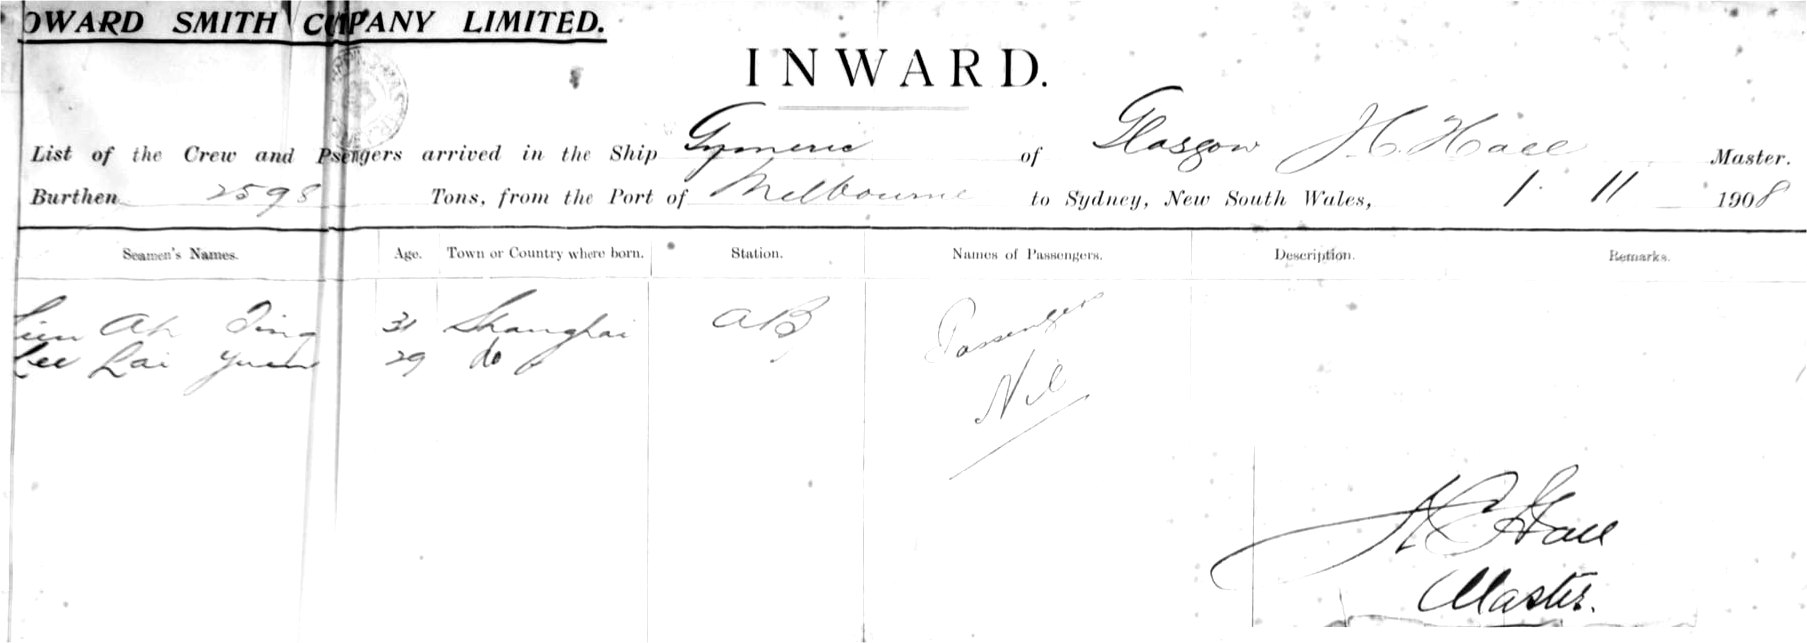 OWARD SMITH COMPANY LIMITED.
INWARD.
List of the Crew and Psengers arrived in the Ship Gymeric of Glasgow H. C. Hall Master.
Burthen 2598 Tons, from the Port of Melbourne to Sydney, New South Wales, 1 11 1908
Seamen's Names. Age. Town or Country where born. Station. Names of Passengers. Description. Remarks.
Ah Ting 31 Shanghai AB Passenger
Lee Lai Yuen 29 do Nil
H C Hall
Master.